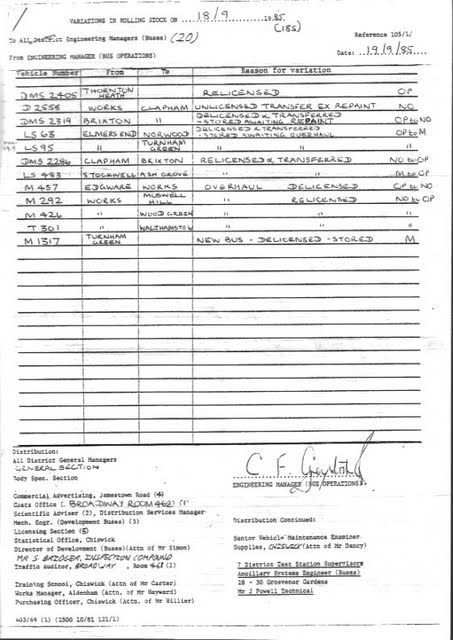 VARIATIONS IN ROLLING STOCK ON 18/9 1985
(185)
To All District Engineering Managers (Buses) (20)
Reference 105/1/
From ENGINEERING MANAGER (BUS OPERATIONS)
Date: 19/9/85
Vehicle Number From To Reason for variation
DMS 2405 THORNTON HEATH RELICENSED OP
D 2558 WORKS CLAPHAM UNLICENSED TRANSFER EX REPAINT NO
DMS 2319 BRIXTON " DELICENSED & TRANSFERRED - STORED AWAITING REPAINT OP to NO
LS 63 ELMERS END NORWOOD DELICENSED & TRANSFERRED - STORED AWAITING OVERHAUL OP to M
LS 95 " TURNHAM GREEN " "
DMS 2286 CLAPHAM BRIXTON RELICENSED & TRANSFERRED NO to OP
LS 483 STOCKWELL ASH GROVE " M to OP
M 457 EDGWARE WORKS OVERHAUL DELICENSED OP to NO
M 292 WORKS MUSWELL HILL " RELICENSED NO to OP
M 426 " WOOD GREEN " " "
T 301 " WALTHAMSTOW " " "
M 1317 TURNHAM GREEN NEW BUS - DELICENSED - STORED M
Distribution:
All District General Managers
GENERAL SECTION
Body Spec. Section
ENGINEERING MANAGER (BUS OPERATIONS)
Commercial Advertising, Jamestown Road (4)
Costs Office (. BROADWAY ROOM 462) (1
Scientific Adviser (2), Distribution Services Manager
Mech. Engr. (Development Buses) (3)
Licensing Section (5)
Statistical Office, Chiswick
Director of Development (Buses)(Attn of Mr Simon)
MR S. INSPECTION COMPOUND
Traffic Auditor, BROADWAY, Room 461 (2)
Training School, Chiswick (Attn of Mr Carter)
Works Manager, Aldenham (Attn. of Mr Hayward)
Purchasing Officer, Chiswick (Attn of Mr Hillier)
403/69 (1) (2500 10/81 121/1)
Distribution Continued:
Senior Vehicle Maintenance Examiner
Supplies, CHISWICK (Attn of Mr Dancy)
7 District Test Station Supervisors
Ancillary Systems Engineer (Buses)
28 - 30 Grosvenor Gardens
Mr J Powell Technical